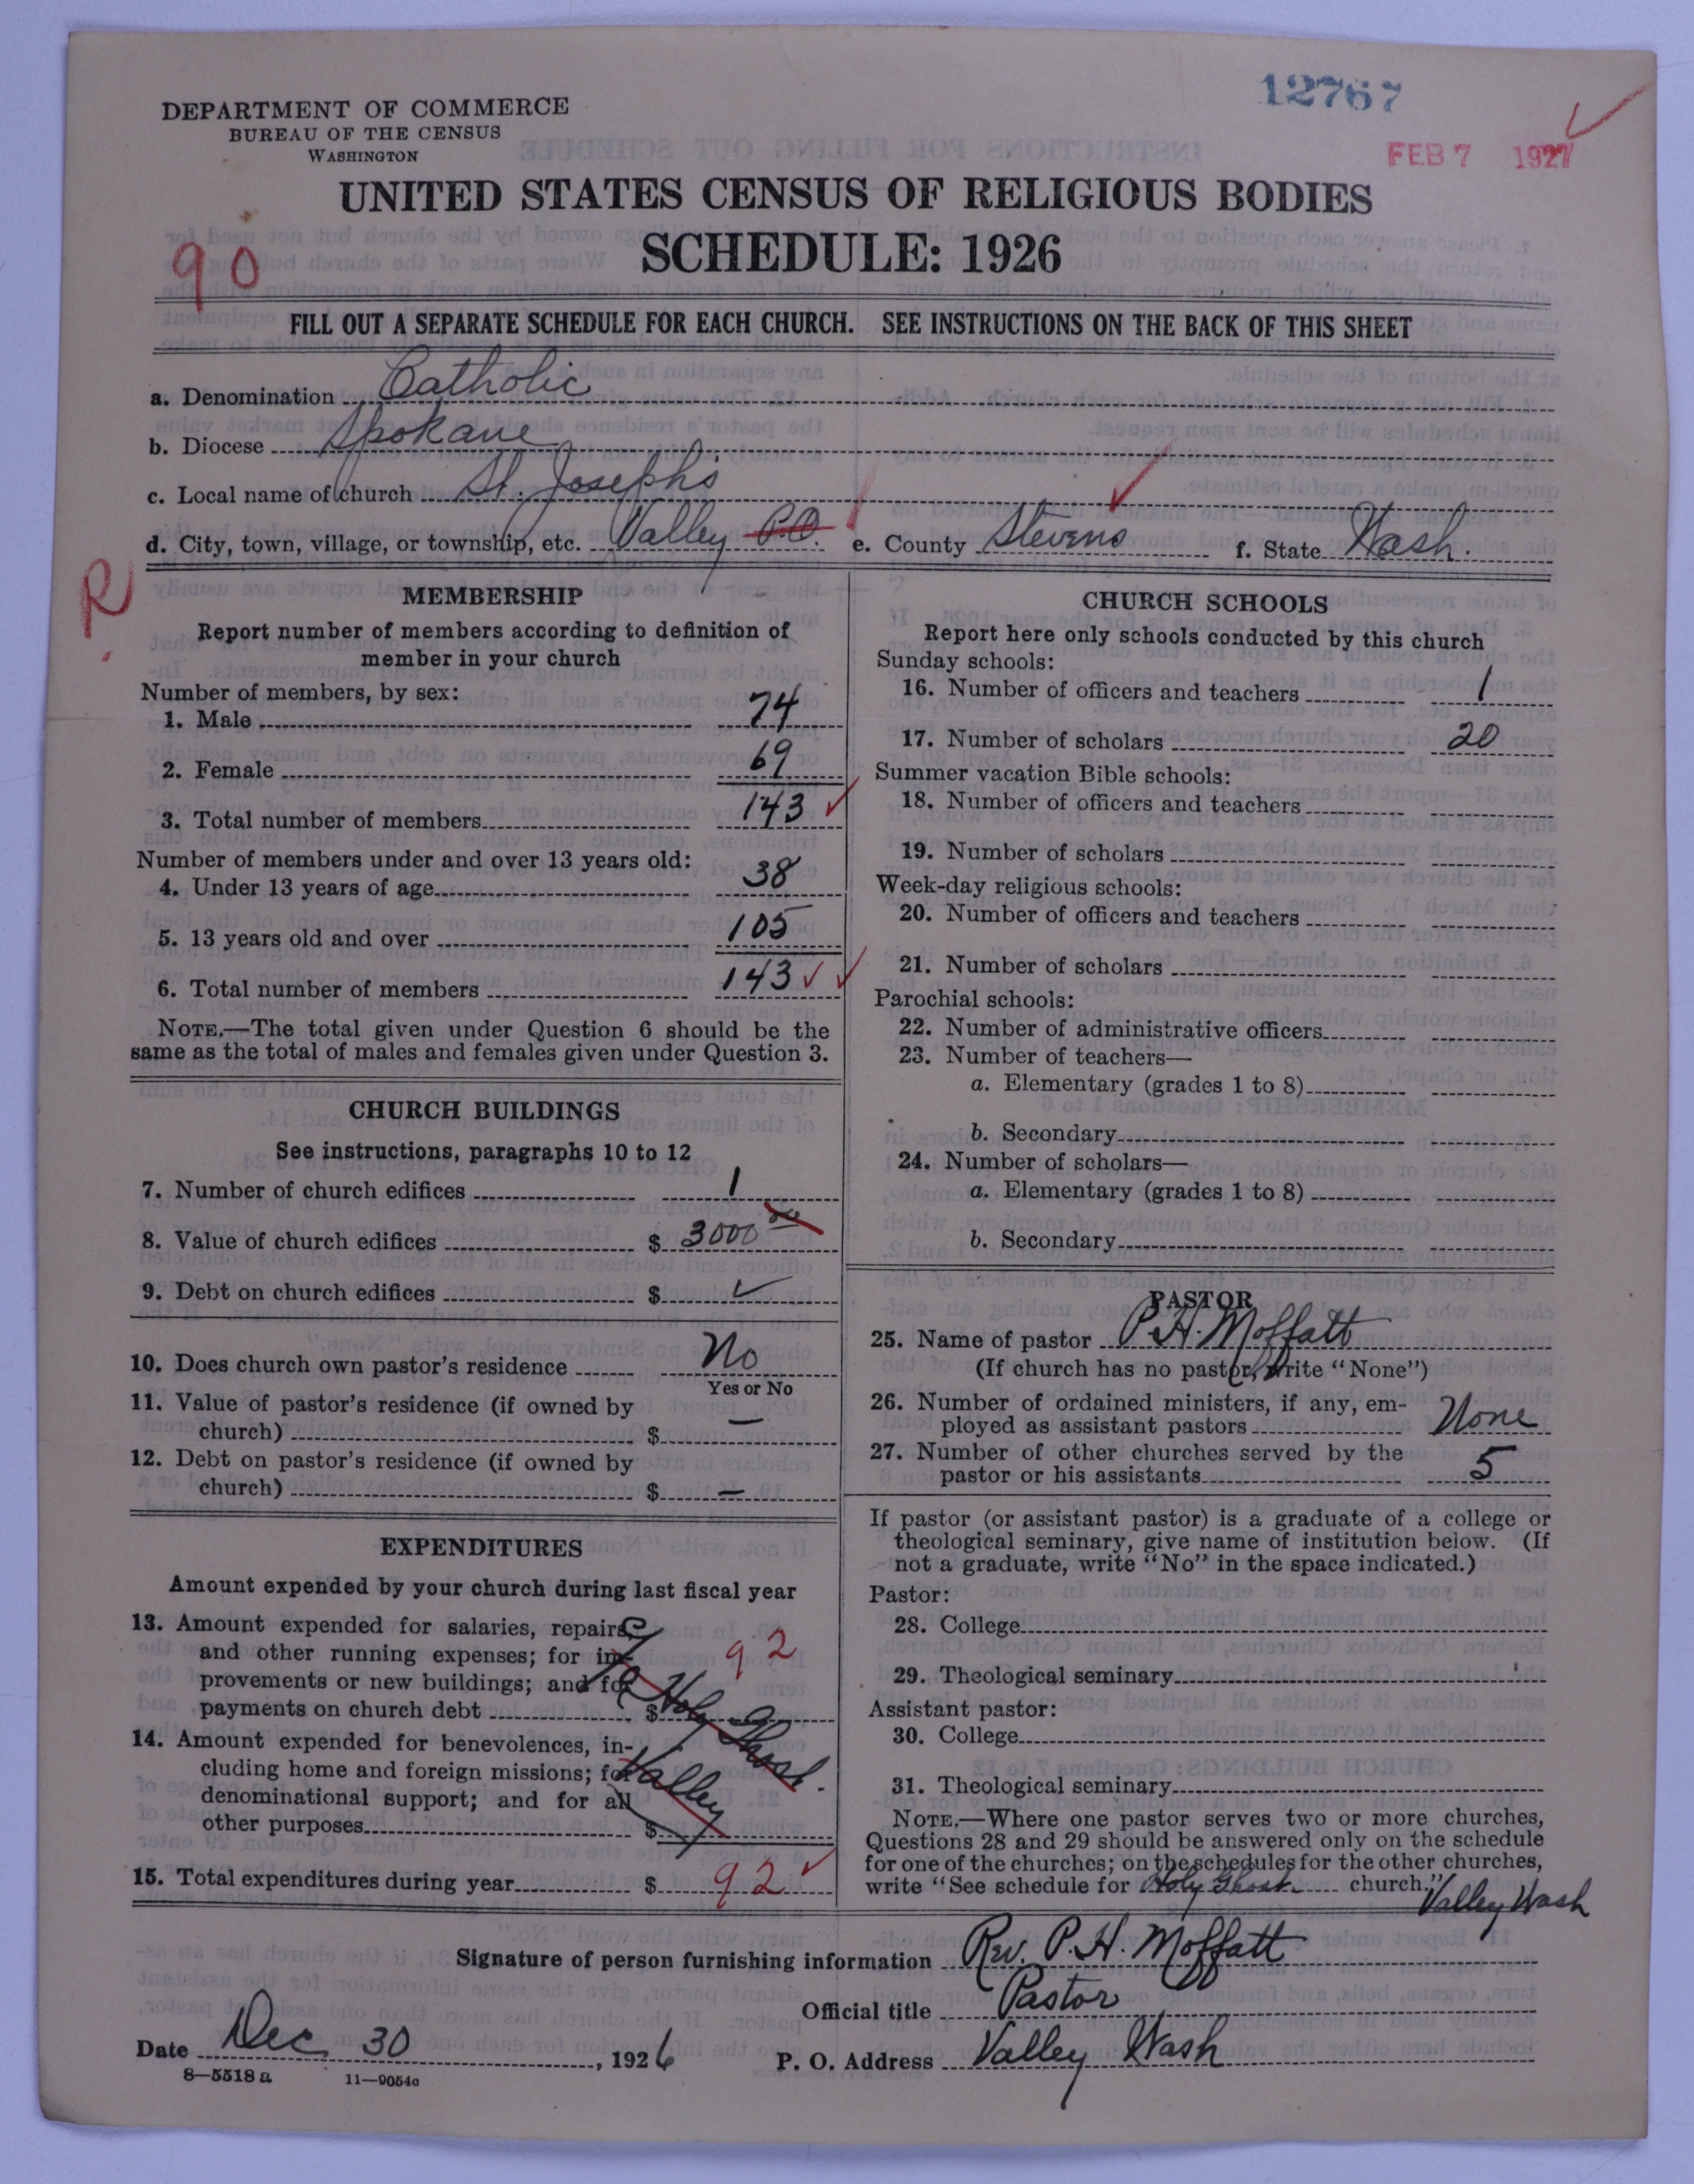 12767
DEPARTMENT OF COMMERCE
BUREAU OF THE CENSUS
WASHINGTON
FEB 7 1927
UNITED STATES CENSUS OF RELIGIOUS BODIES
SCHEDULE: 1926
90
FILL OUT A SEPARATE SCHEDULE FOR EACH CHURCH. SEE INSTRUCTIONS ON THE BACK OF THIS SHEET
a. Denomination Catholic
b. Diocese Spokane
c. Local name of church St. Josephs
d. City, town, village, or township, etc. Valley P.O. e. County Stevens f. State Wash.
R
MEMBERSHIP
Report number of members according to definition of
member in your church
Number of members, by sex:
1. Male 74
2. Female 69
3. Total number of members 143
Number of members under and over 13 years old:
4. Under 13 years of age 38
5. 13 years old and over 105
6. Total number of members 143
NOTE.—The total given under Question 6 should be the
same as the total of males and females given under Question 3.
CHURCH BUILDINGS
See instructions, paragraphs 10 to 12
7. Number of church edifices 1
8. Value of church edifices $ 3000 00
9. Debt on church edifices $
10. Does church own pastor's residence No
Yes or No
11. Value of pastor's residence (if owned by
church) $ —
12. Debt on pastor's residence (if owned by
church) $ —
EXPENDITURES
Amount expended by your church during last fiscal year
13. Amount expended for salaries, repairs,
and other running expenses; for im-
provements or new buildings; and for
payments on church debt $ 92
Holy Ghost.
Valley
14. Amount expended for benevolences, in-
cluding home and foreign missions; for
denominational support; and for all
other purposes $
15. Total expenditures during year $ 92
CHURCH SCHOOLS
Report here only schools conducted by this church
Sunday schools:
16. Number of officers and teachers 1
17. Number of scholars 20
Summer vacation Bible schools:
18. Number of officers and teachers
19. Number of scholars
Week-day religious schools:
20. Number of officers and teachers
21. Number of scholars
Parochial schools:
22. Number of administrative officers
23. Number of teachers—
a. Elementary (grades 1 to 8)
b. Secondary
24. Number of scholars—
a. Elementary (grades 1 to 8)
b. Secondary
PASTOR
25. Name of pastor P. H. Moffatt
(If church has no pastor, write "None")
26. Number of ordained ministers, if any, em-
ployed as assistant pastors None
27. Number of other churches served by the
pastor or his assistants 5
If pastor (or assistant pastor) is a graduate of a college or
theological seminary, give name of institution below. (If
not a graduate, write "No" in the space indicated.)
Pastor:
28. College
29. Theological seminary
Assistant pastor:
30. College
31. Theological seminary
NOTE.—Where one pastor serves two or more churches,
Questions 28 and 29 should be answered only on the schedule
for one of the churches; on the schedules for the other churches,
write "See schedule for Holy Ghost church."
Valley Wash
Signature of person furnishing information Rev. P. H. Moffatt
Official title Pastor
Date Dec 30, 1926 P. O. Address Valley Wash
8—5518 a 11—9054c